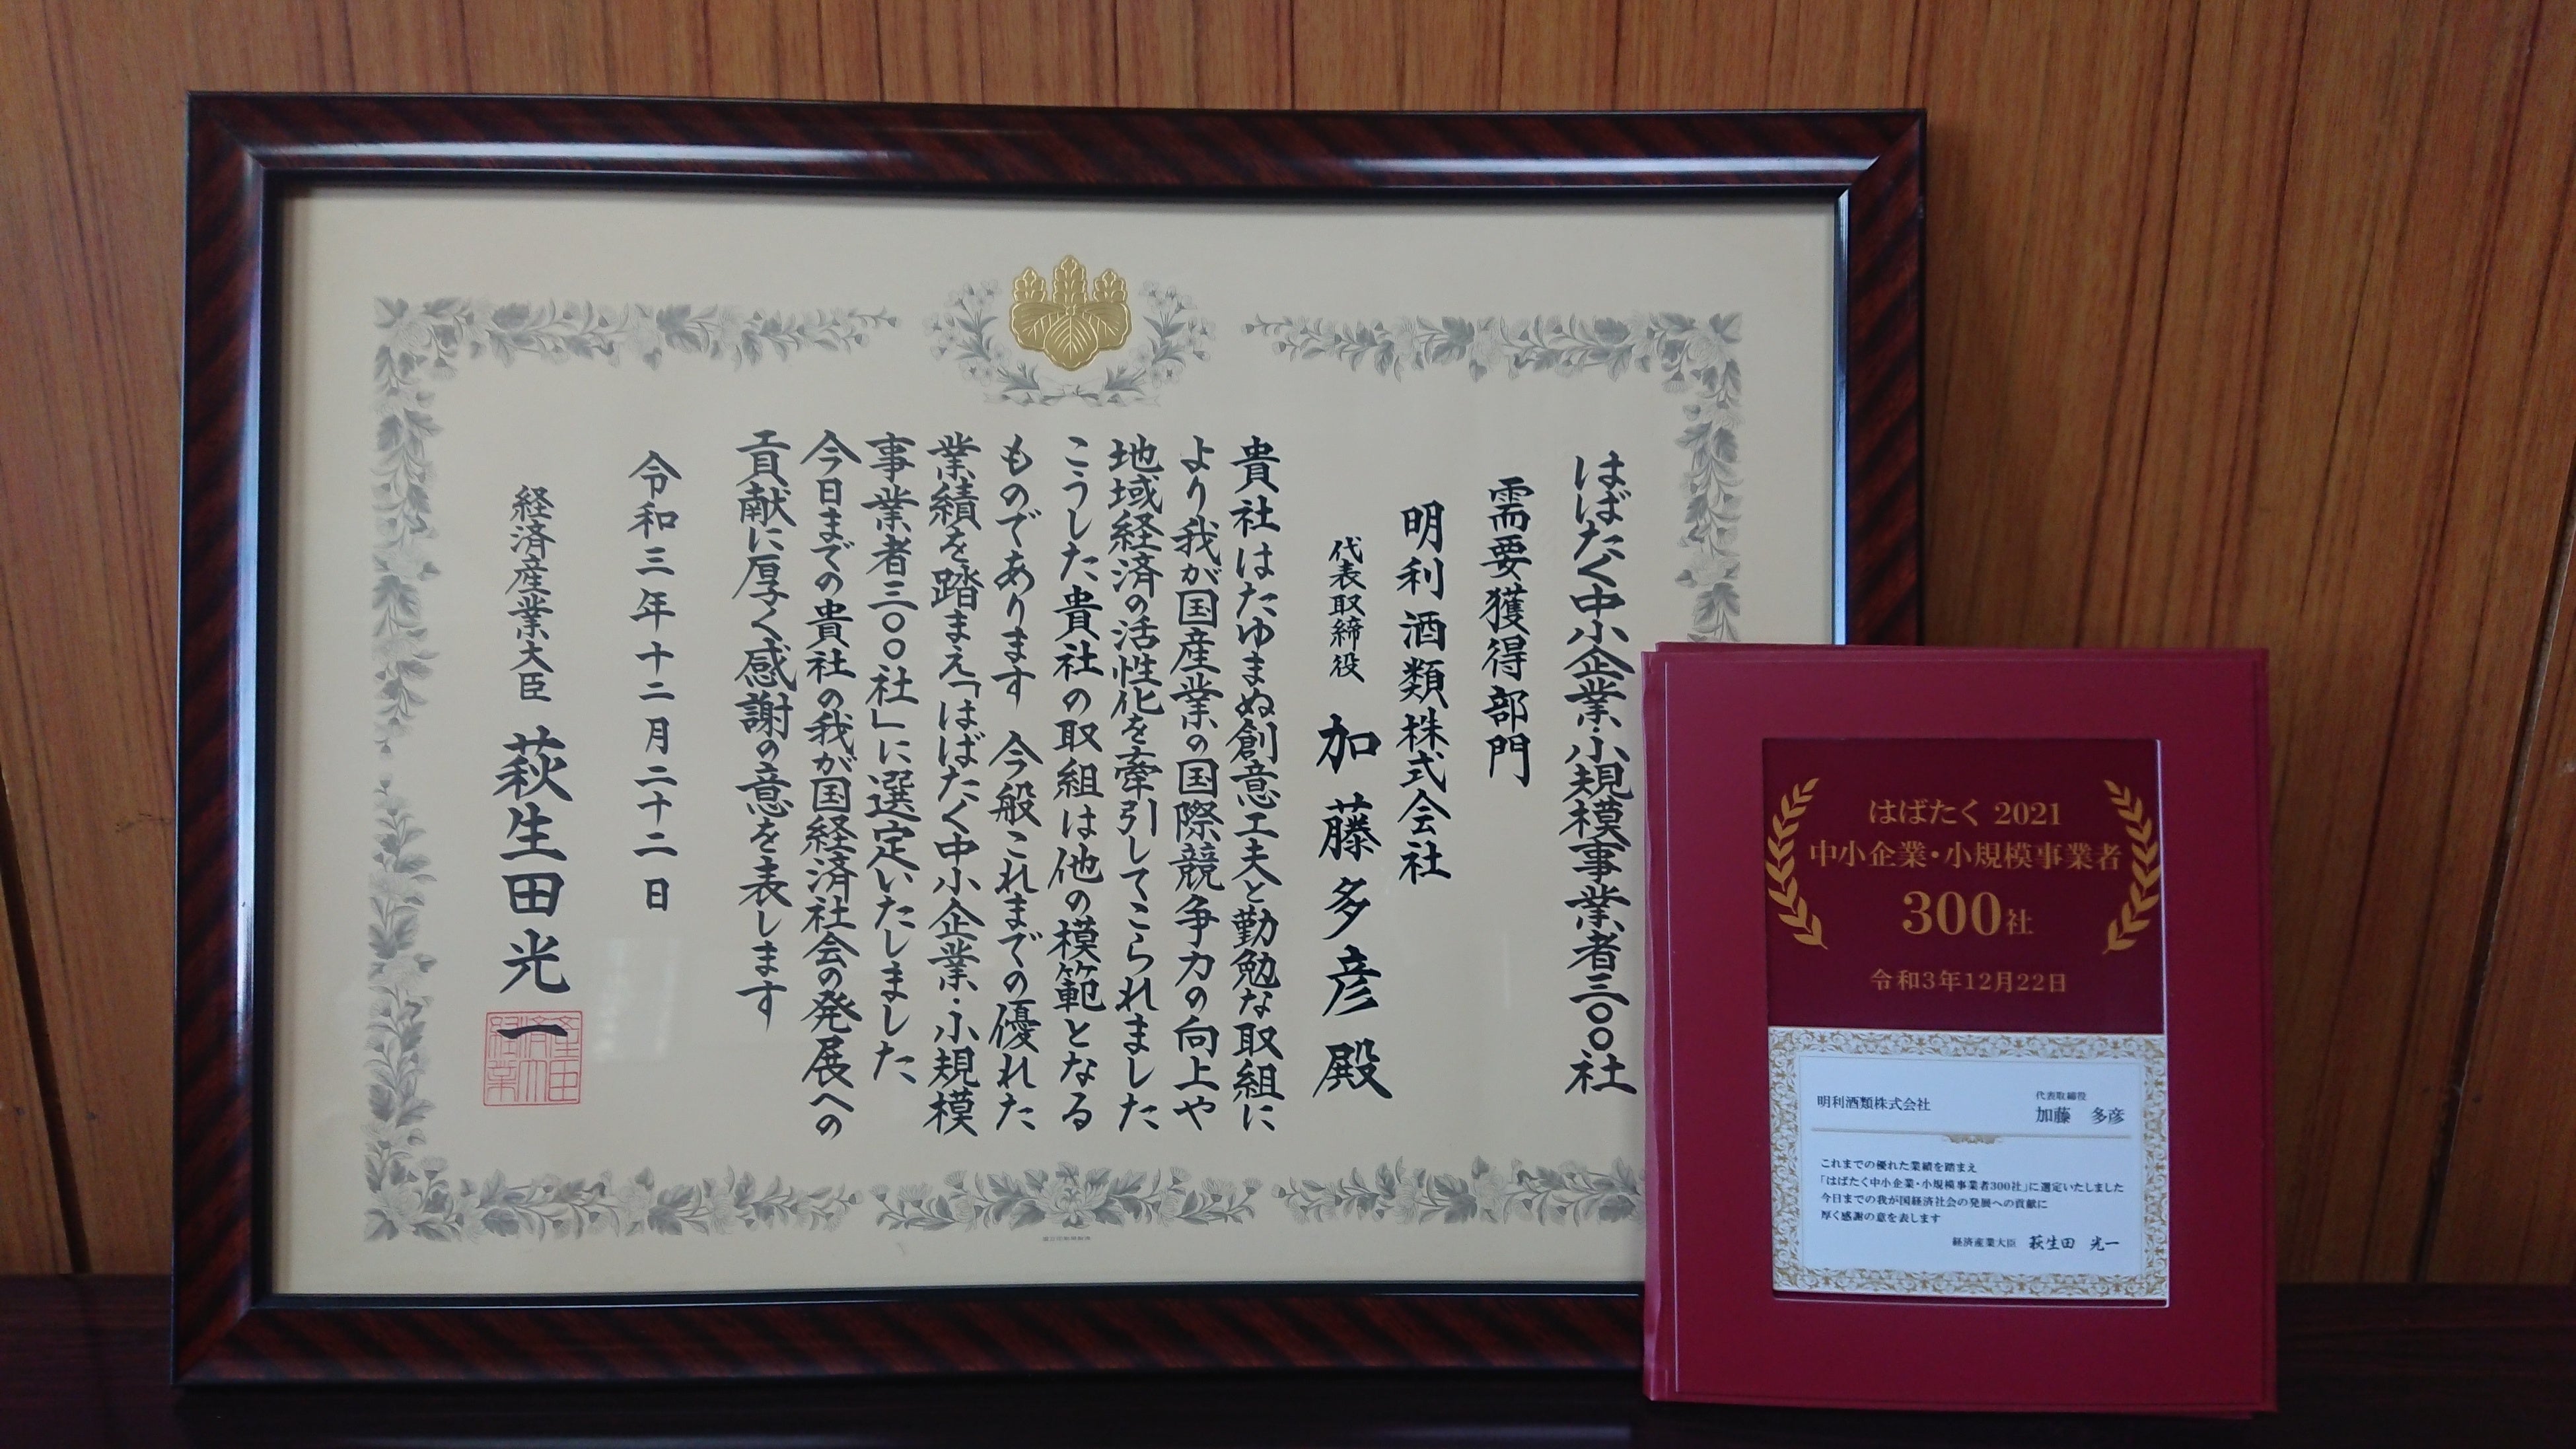 はばたく中小企業・小規模事業者三〇〇社
需要獲得部門
明利酒類株式会社
代表取締役 加藤多彦殿
貴社はたゆまぬ創意工夫と勤勉な取組に
より我が国産業の国際競争力の向上や
地域経済の活性化を牽引してこられました
こうした貴社の取組は他の模範となる
ものであります 今般これまでの優れた
業績を踏まえ「はばたく中小企業・小規模
事業者三〇〇社」に選定いたしました
今日までの貴社の我が国経済社会の発展への
貢献に厚く感謝の意を表します
令和三年十二月二十二日
経済産業大臣 萩生田光一
はばたく 2021
中小企業・小規模事業者
300社
令和3年12月22日
明利酒類株式会社
代表取締役
加藤 多彦
これまでの優れた業績を踏まえ
「はばたく中小企業・小規模事業者300社」に選定いたしました
今日までの我が国経済社会の発展への貢献に
厚く感謝の意を表します
経済産業大臣 萩生田 光一